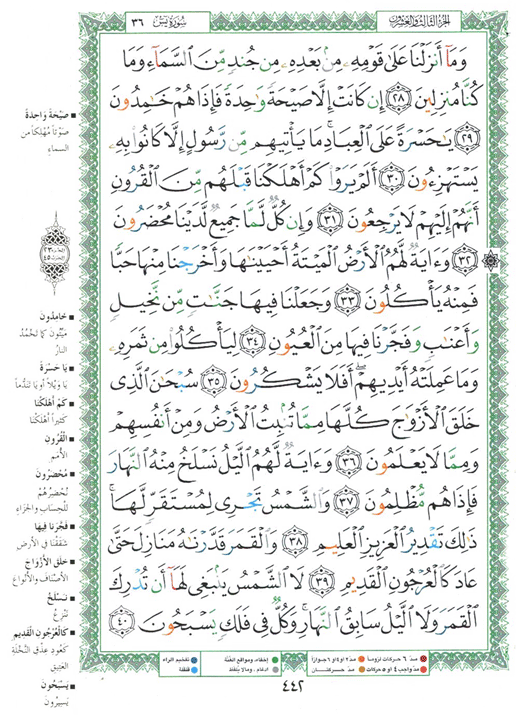 الجزء الثالث والعشرون
سورة يس ٣٦
وَمَآ أَنزَلْنَا عَلَىٰ قَوْمِهِۦ مِنۢ بَعْدِهِۦ مِن جُندٍ مِّنَ ٱلسَّمَآءِ وَمَا
كُنَّا مُنزِلِينَ ٢٨ إِن كَانَتْ إِلَّا صَيْحَةً وَٰحِدَةً فَإِذَا هُمْ خَٰمِدُونَ
٢٩ يَٰحَسْرَةً عَلَى ٱلْعِبَادِ مَا يَأْتِيهِم مِّن رَّسُولٍ إِلَّا كَانُوا۟ بِهِۦ
يَسْتَهْزِءُونَ ٣٠ أَلَمْ يَرَوْا۟ كَمْ أَهْلَكْنَا قَبْلَهُم مِّنَ ٱلْقُرُونِ
أَنَّهُمْ إِلَيْهِمْ لَا يَرْجِعُونَ ٣١ وَإِن كُلٌّ لَّمَّا جَمِيعٌ لَّدَيْنَا مُحْضَرُونَ
٣٢ وَءَايَةٌ لَّهُمُ ٱلْأَرْضُ ٱلْمَيْتَةُ أَحْيَيْنَٰهَا وَأَخْرَجْنَا مِنْهَا حَبًّا
فَمِنْهُ يَأْكُلُونَ ٣٣ وَجَعَلْنَا فِيهَا جَنَّٰتٍ مِّن نَّخِيلٍ
وَأَعْنَٰبٍ وَفَجَّرْنَا فِيهَا مِنَ ٱلْعُيُونِ ٣٤ لِيَأْكُلُوا۟ مِن ثَمَرِهِۦ
وَمَا عَمِلَتْهُ أَيْدِيهِمْ أَفَلَا يَشْكُرُونَ ٣٥ سُبْحَٰنَ ٱلَّذِى
خَلَقَ ٱلْأَزْوَٰجَ كُلَّهَا مِمَّا تُنۢبِتُ ٱلْأَرْضُ وَمِنْ أَنفُسِهِمْ
وَمِمَّا لَا يَعْلَمُونَ ٣٦ وَءَايَةٌ لَّهُمُ ٱلَّيْلُ نَسْلَخُ مِنْهُ ٱلنَّهَارَ
فَإِذَا هُم مُّظْلِمُونَ ٣٧ وَٱلشَّمْسُ تَجْرِى لِمُسْتَقَرٍّ لَّهَا
ذَٰلِكَ تَقْدِيرُ ٱلْعَزِيزِ ٱلْعَلِيمِ ٣٨ وَٱلْقَمَرَ قَدَّرْنَٰهُ مَنَازِلَ حَتَّىٰ
عَادَ كَٱلْعُرْجُونِ ٱلْقَدِيمِ ٣٩ لَا ٱلشَّمْسُ يَنۢبَغِى لَهَآ أَن تُدْرِكَ
ٱلْقَمَرَ وَلَا ٱلَّيْلُ سَابِقُ ٱلنَّهَارِ وَكُلٌّ فِى فَلَكٍ يَسْبَحُونَ ٤٠
صَيْحَةً وَاحِدَةً
صَوْتاً مُهْلِكاً من
السماء
خَامِدُون
مَيِّتُونَ كما تَخْمُدُ
النارُ
يَا حَسْرَةً
يَا وَيْلاً أو يا تَنَدُّماً
كَمْ أَهْلَكْنَا
كثيراً أهْلَكْنا
الْقُرُون
الأمَم
مُحْضَرُونَ
نُحْضِرُهُمْ
للحِسَابِ والجَزَاءِ
فَجَّرْنَا فِيهَا
شَقَقْنا في الأَرْضِ
خَلَقَ الأَزْوَاجَ
الأَصْنَافَ والأنْوَاعَ
نَسْلَخُ
نَنْزِعُ
كَالْعُرْجُونِ الْقَدِيم
كعُودِ عِذْقِ النَّخْلَةِ
العَتِيقِ
يَسْبَحُونَ
يَسِيرُونَ
مدّ ٦ حركات لزوماً
مدّ ٢ أو ٤ أو ٦ جوازاً
إخفاء، ومواقع الغُنَّة
تفخيم الراء
مدّ واجب ٤ أو ٥ حركات
مدّ حركتان
إدغام، وما لا يُلفَظ
قلقلة
٤٤٢